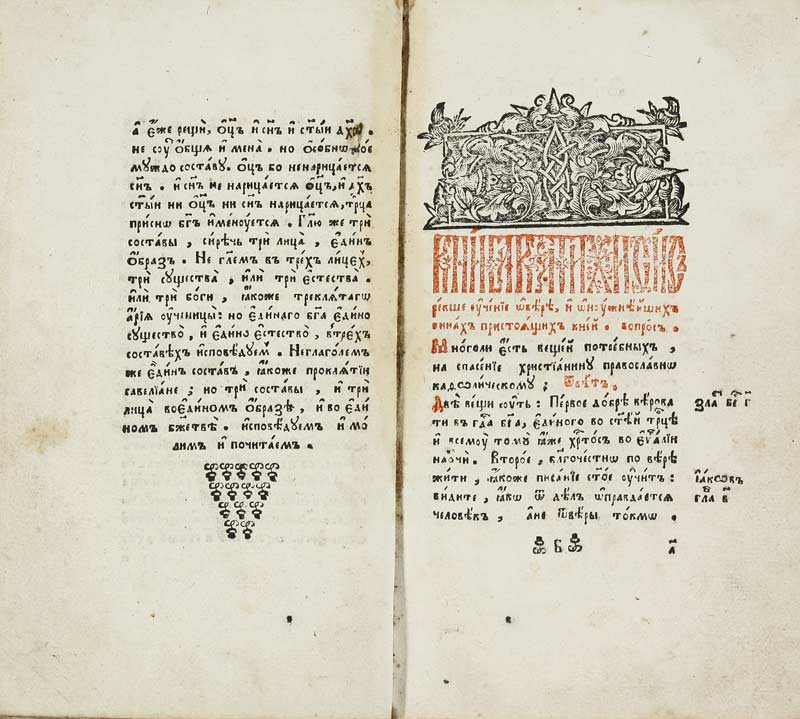 а҆ є҆́же рещѝ, ѻ҆ц҃ъ и҆ сн҃ъ и҆ ст҃ы́й дх҃ъ .
не сꙋ́ть ѻ҆́бщаѧ и҆мена̀ . но ѻ҆со́бнѡ
мꙋ́ждо соста́вꙋ . ѻ҆ц҃ъ бо ненарица́етсѧ
сн҃ъ . и҆ сн҃ъ не нарица́етсѧ ѻ҆ц҃ъ, и҆ дх҃ъ
ст҃ы́й ни ѻ҆ц҃ъ ни сн҃ъ нарица́етсѧ, трⷪ҇ца
при́снѡ бг҃ъ и҆менꙋ́етсѧ . Гл҃ю же трѝ
соста́вы , си́рѣчь трѝ лица̀ , є҆ди́нъ
ѻ҆́бразъ . Не гл҃емъ в̾ тре́хъ ли́цехъ,
трѝ сꙋщества̀ , и҆лѝ трѝ є҆стества̀ .
и҆лѝ трѝ бо́ги , ꙗ҆́коже треклѧ́тагѡ
а҆́рїѧ ᲂу҆ченицы̀ : но є҆ди́наго бг҃а є҆ди́но
сꙋщество̀ , и҆ є҆ди́но є҆стество̀ , в̾тре́хъ
соста́вѣхъ и҆сповѣ́дꙋемъ . Неглаго́лемъ
же є҆ди́нъ соста́въ , ꙗ҆́коже проклѧ́тїи
савелїа́не ; но трѝ соста́вы , и҆ трѝ
лица̀ воє҆ди́номъ ѻ҆́бразѣ , и҆ во є҆ди́
номъ бж҃ествѣ̀ . и҆сповѣ́дꙋемъ и҆ мо́
димъ и҆ почита́емъ .
ре́кше ᲂу҆че́нїе ѡ҆вѣ́рѣ , и҆ ѡ҆нꙋжнѣ́йшихъ
винахъ пристоѧ́щихъ кни́й . вопро́съ .
Мно́голи є҆́сть веще́й потре́бныхъ ,
на спасе́нїе христїа́нинꙋ правосла́внѡ
каѳоли́ческомꙋ ; Ѿвѣ́тъ .
Двѣ̀ ве́щи сꙋ́ть : Пе́рвое до́брѣ вѣ́рова
ти въ гдⷭ҇а бг҃а , є҆ди́ного во ст҃ѣ́й трⷪ҇це
и҆ всемꙋ̀ томꙋ̀ ꙗ҆́же хрⷭ҇то́съ во є҆ѵⷢ҇лїи
наᲂу҆чѝ . Второ́е , бл҃гоче́стнѡ по вѣ́рѣ
жи́ти , ꙗ҆́коже писа́нїе ст҃о́е ᲂу҆чи́тъ :
ви́дите , ꙗ҆́кѡ ѿ дѣ́лъ ѡ҆правда́етсѧ
человѣ́къ , а҆не ѿвѣ́ры то́кмѡ .
І҆а́ковъ
гла в҃
Б
а҃